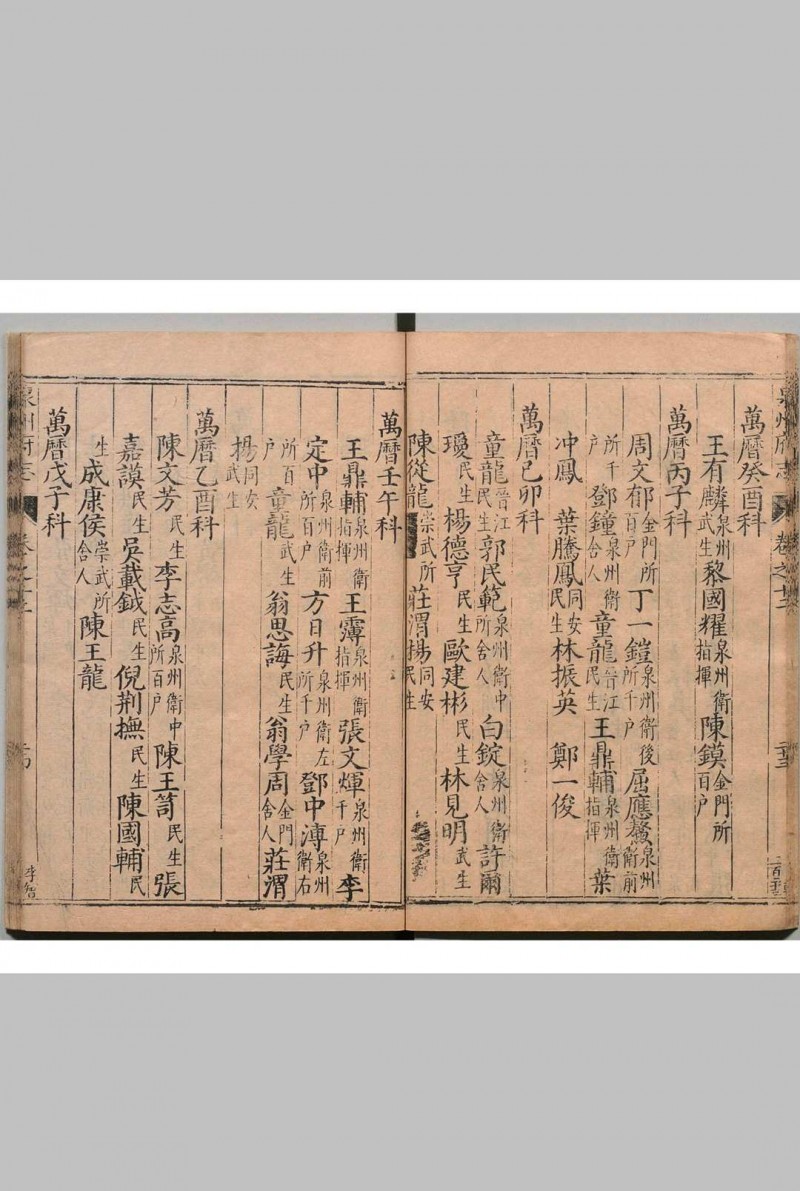 泉州府志 卷之十三
萬曆癸酉科
王有麟泉州衛武生黎國耀泉州衛指揮陳鏌金門所百户
萬曆丙子科
周文郁金門所百户丁一鎧泉州衛後所千户屈應鰲泉州衛前
所千户鄧鐘泉州衛舍人童龍晉江民生王鼎輔泉州衛指揮葉
冲鳳 葉騰鳳同安民生林振英 鄭一俊
萬曆己卯科
童龍晉江民生郭民範泉州衛中所舍人白錠泉州衛舍人許爾
瑷民生楊德亨民生歐建彬民生林見明武生
陳從龍崇武所莊渭揚同安民生
萬曆壬午科
王鼎輔泉州衛指揮王霶泉州衛指揮張文煇泉州衛千户李
定中泉州衛前所百户方日升泉州衛左所千户鄧中漙泉州衛右
所百户童龍武生翁思誨民生翁學周金門舍人莊渭
楊同安武生
萬曆乙酉科
陳文芳民生李志高泉州衛中所百户陳王笥民生張
嘉謨民生吳載鉞民生倪荆撫民生陳國輔民
生成康侯崇武所舍人陳王龍
萬曆戊子科
泉州府志 卷之十三